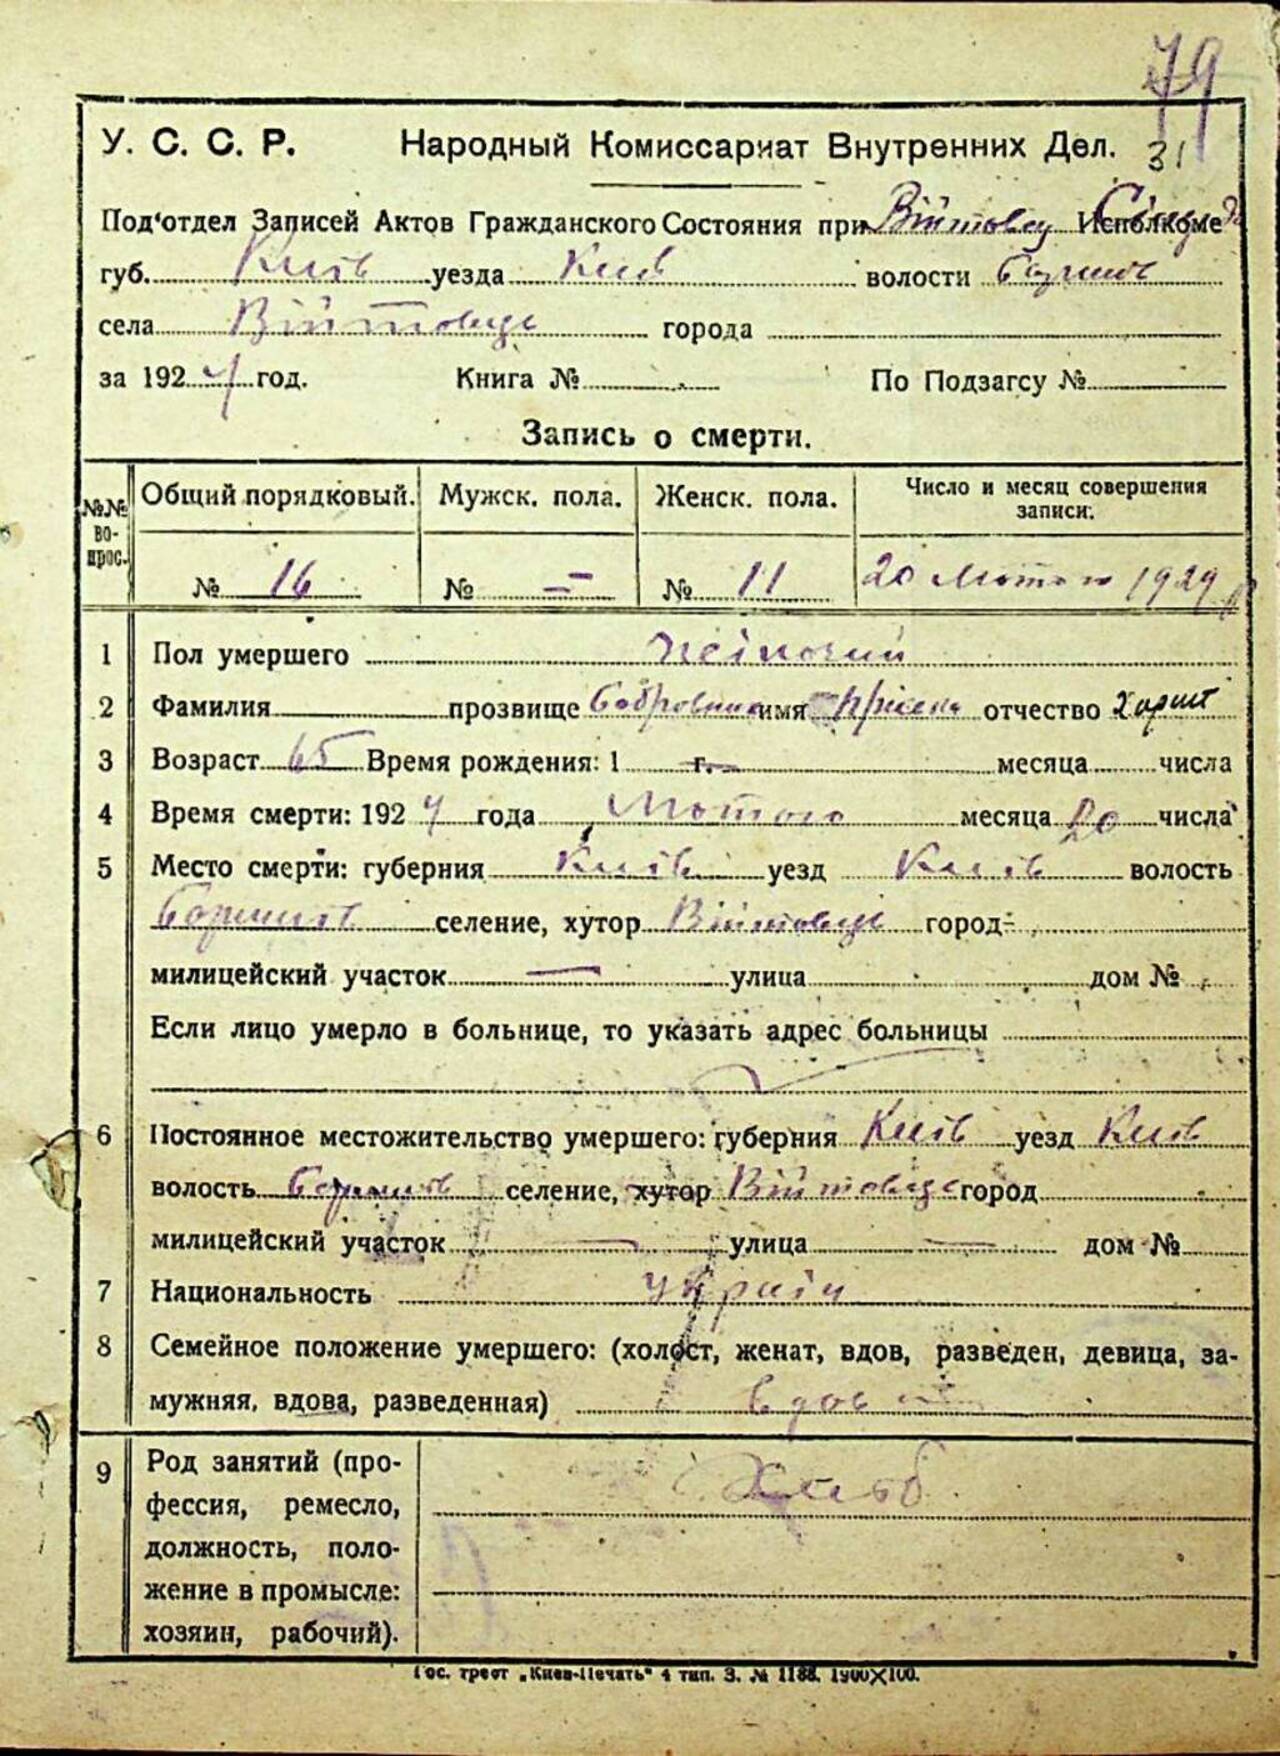 79
31
У. С. С. Р. Народный Комиссариат Внутренних Дел.
Под'отдел Записей Актов Гражданского Состояния при Війтовец Исполкоме
губ. Київ уезда Київ волости
села Війтовце города
за 1924 год. Книга № По Подзагсу №
Запись о смерти.
№№ во- прос. Общий порядковый. Мужск. пола. Женск. пола. Число и месяц совершения записи:
№ 16 № — № 11 20 Лютого 1924 р
1 Пол умершего Жіночий
2 Фамилия прозвище имя отчество Харит
3 Возраст 65 Время рождения: 1 г. месяца числа
4 Время смерти: 1924 года Лютого месяца 20 числа
5 Место смерти: губерния Київ уезд Київ волость
селение, хутор Війтовце город
милицейский участок — улица дом №
Если лицо умерло в больнице, то указать адрес больницы
6 Постоянное местожительство умершего: губерния Київ уезд Київ
волость селение, хутор Війтовце город
милицейский участок — улица — дом №
7 Национальность Україн
8 Семейное положение умершего: (холост, женат, вдов, разведен, девица, за-
мужняя, вдова, разведенная)
9 Род занятий (про-
фессия, ремесло,
должность, поло-
жение в промысле:
хозяин, рабочий).
Гос. трест „Киев-Печать" 4 тип. З. № 1188. 1900×100.